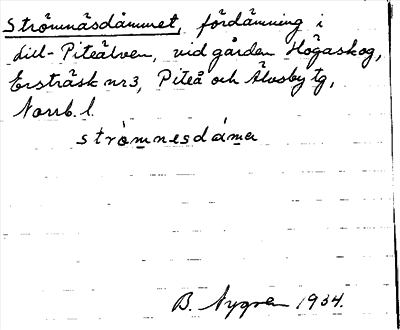 Strömnäsdämmet, fördämning i
Lill-Piteälven, vid gården Högaskog,
Ersträsk nr3, Piteå och Älvsby tg,
Norrb. l.
strömnesdáma
B. Nygren 1934.